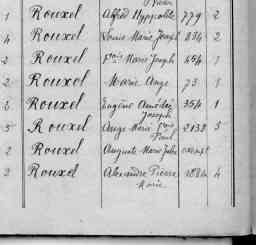 1 Rouxel Alfred Hyppolite 779 2
4 Rouxel Louis Marie Joseph 834 2
2 Rouxel Fois Marie Joseph 454 1
2 Rouxel Marie Ange 73 1
2 Rouxel Eugène Amédée 354 1
Joseph
3 Rouxel Ange Marie Fois 2133 3
Paul
2 Rouxel Auguste Marie Jules exempt
2 Rouxel Alexandre Pierre 1884 4
Marie